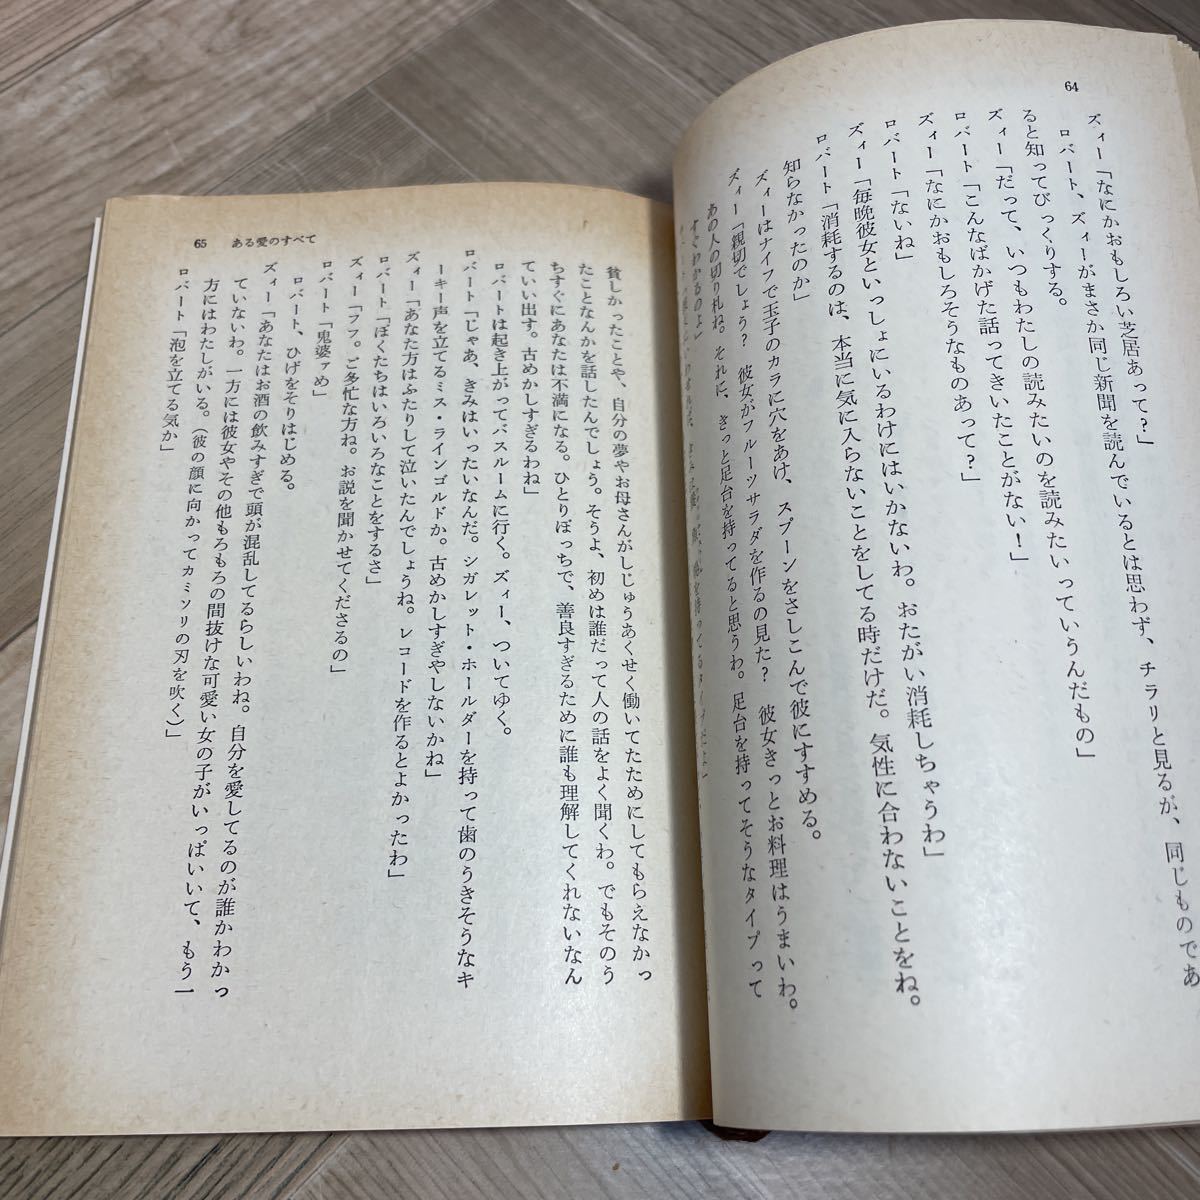 64
ズィー「なにかおもしろい芝居あって?」
ロバート、ズィーがまさか同じ新聞を読んでいるとは思わず、チラリと見るが、同じものであ
ると知ってびっくりする。
ズィー「だって、いつもわたしの読みたいのを読みたいっていうんだもの」
ロバート「こんなばかげた話ってきいたことがない!」
ズィー「なにかおもしろそうなものあって?」
ロバート「ないね」
ズィー「毎晩彼女といっしょにいるわけにはいかないわ。おたがい消耗しちゃうわ」
ロバート「消耗するのは、本当に気に入らないことをしてる時だけだ。気性に合わないことをね。
知らなかったのか」
ズィーはナイフで玉子のカラに穴をあけ、スプーンをさしこんで彼にすすめる。
ズィー「親切でしょう? 彼女がフルーツサラダを作るの見た? 彼女きっとお料理はうまいわ。
あの人の切り札ね。それに、きっと足台を持ってると思うわ。足台を持ってそうなタイプって
すぐわかるのよ」
65 ある愛のすべて
貧しかったことや、自分の夢やお母さんがしじゅうあくせく働いてたためにしてもらえなかっ
たことなんかを話したんでしょう。そうよ、初めは誰だって人の話をよく聞くわ。でもそのう
ちすぐにあなたは不満になる。ひとりぼっちで、善良すぎるために誰も理解してくれないなん
ていい出す。古めかしすぎるわね」
ロバートは起き上がってバスルームに行く。ズィー、ついてゆく。
ロバート「じゃあ、きみはいったいなんだ。シガレット・ホールダーを持って歯のうきそうなキ
ーキー声を立てるミス・ラインゴルドか。古めかしすぎやしないかね」
ズィー「あなた方はふたりして泣いたんでしょうね。レコードを作るとよかったわ」
ロバート「ぼくたちはいろいろなことをするさ」
ズィー「フフ。ご多忙な方ね。お説を聞かせてくださるの」
ロバート「鬼婆ァめ」
ロバート、ひげをそりはじめる。
ズィー「あなたはお酒の飲みすぎで頭が混乱してるらしいわね。自分を愛してるのが誰かわかっ
ていないわ。一方には彼女やその他もろもろの間抜けな可愛い女の子がいっぱいいて、もう一
方にはわたしがいる。(彼の顔に向かってカミソリの刃を吹く)」
ロバート「泡を立てる気か」